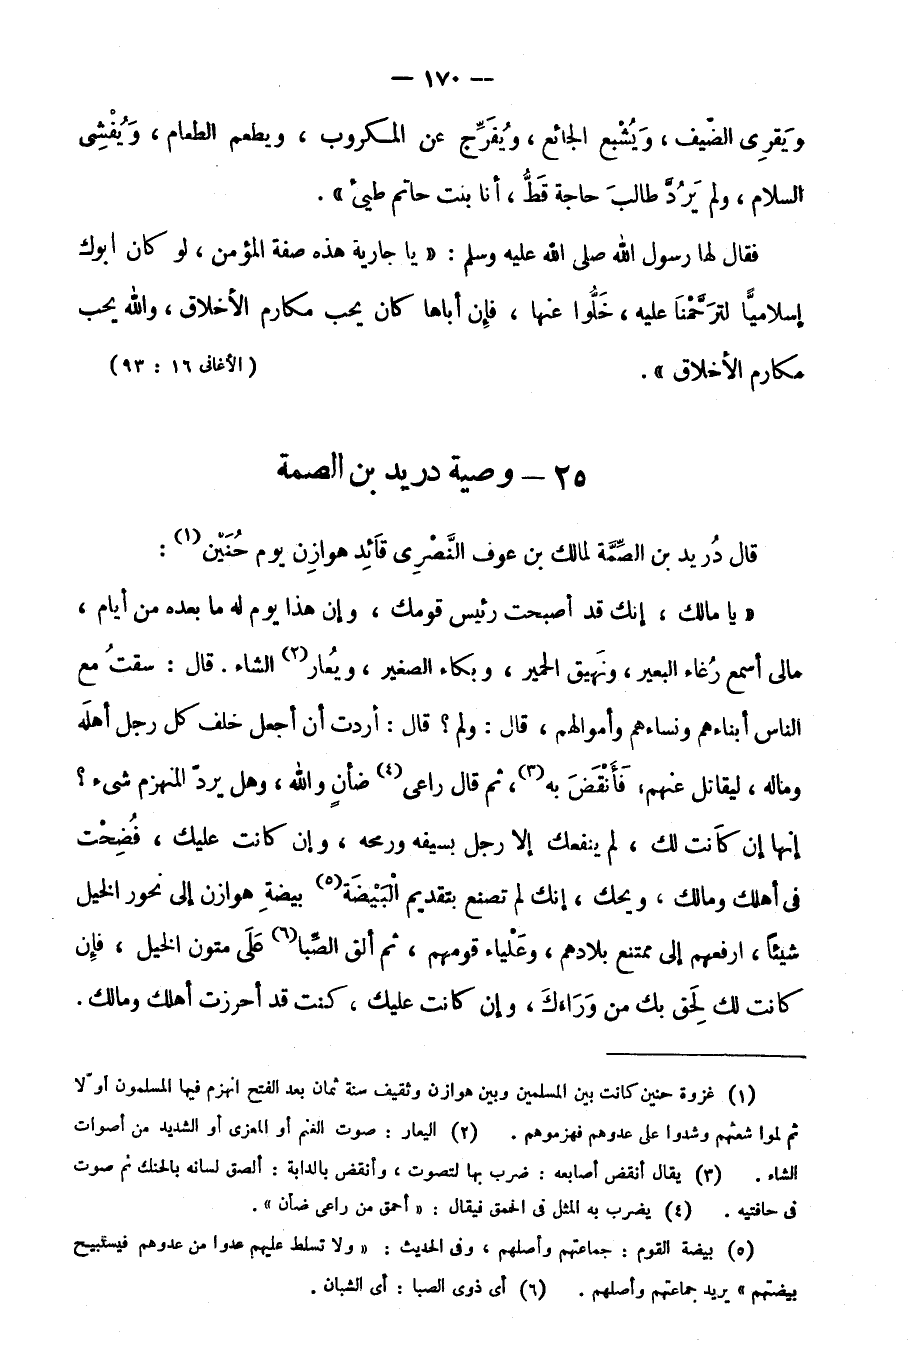 — ١٧٠ —
ويَقرِى الضّيف ، وَيُشْبع الجائع ، ويُفَرِّج عن المكروب ، ويطعم الطعام ، وَيُفْشِى
السلام ، ولم يَرُدَّ طالبَ حاجة قَطُّ ، أنا بنت حاتم طيئ » .
فقال لها رسول الله صلى الله عليه وسلم : « يا جارية هذه صفة المؤمن ، لو كان أبوك
إسلاميًّا لترَحَّمْنَا عليه ، خَلُّوا عنها ، فإن أباها كان يحب مكارم الأخلاق ، والله يحب
مكارم الأخلاق » . ( الأغانى ١٦ : ٩٣ )
٢٥ — وصية دريد بن الصمة
قال دُريد بن الصِّمَّة لمالك بن عوف النَّصْرِى قَائد هوازِن يوم حُنَيْن (١) :
« يا مالك ، إنك قد أصبحت رئيس قومك ، وإن هذا يوم له ما بعده من أيام ،
مالى أسمع رُغاء البعير ، ونَهِيق الحمير ، وبكاء الصغير ، ويُعار (٢) الشاء . قال : سقتُ مع
الناس أبناءهم ونساءهم وأموالهم ، قال : ولم ؟ قال : أردت أن أجعل خلف كل رجل أهلَه
وماله ، ليقاتل عنهم، فَأَنْقَضَ به (٣) ، ثم قال راعى (٤) ضأنٍ والله ، وهل يردّ المنهزم شىء ؟
إنها إن كَانت لك ، لم ينفعك إلا رجل بسيفه ورمحه ، وإن كانت عليك ، فُضِحْت
فى أهلك ومالك ، ويحك ، إنك لم تصنع بتقديم الْبَيْضَة (٥) بيضةِ هوازن إلى نحور الخيل
شيئاً ، ارفعهم إلى ممتنع بلادهم ، وعَلْياء قومهم ، ثم ألق الصِّبا (٦) عَلَى متون الخيل ، فإن
كانت لك لِحَق بك من وَرَاءكَ ، وإن كانت عليك ، كنت قد أحرزت أهلك ومالك .
(١) غزوة حنين كانت بين المسلمين وبين هوازن وثقيف سنة ثمان بعد الفتح انهزم فيها المسلمون أولا
ثم لموا شعثهم وشدوا على عدوهم فهزموهم . (٢) اليعار : صوت الغنم أو المعزى أو الشديد من أصوات
الشاء . (٣) يقال أنقض أصابعه : ضرب بها لتصوت ، وأنقض بالدابة : ألصق لسانه بالحنك ثم صوت
فى حافتيه . (٤) يضرب به المثل فى الحمق فيقال : « أحمق من راعى ضأن » .
(٥) بيضة القوم : جماعتهم وأصلهم ، وفى الحديث : « ولا تسلط عليهم عدوا من عدوهم فيستبيح
بيضتهم » يريد جماعتهم وأصلهم . (٦) أى ذوى الصبا : أى الشبان .